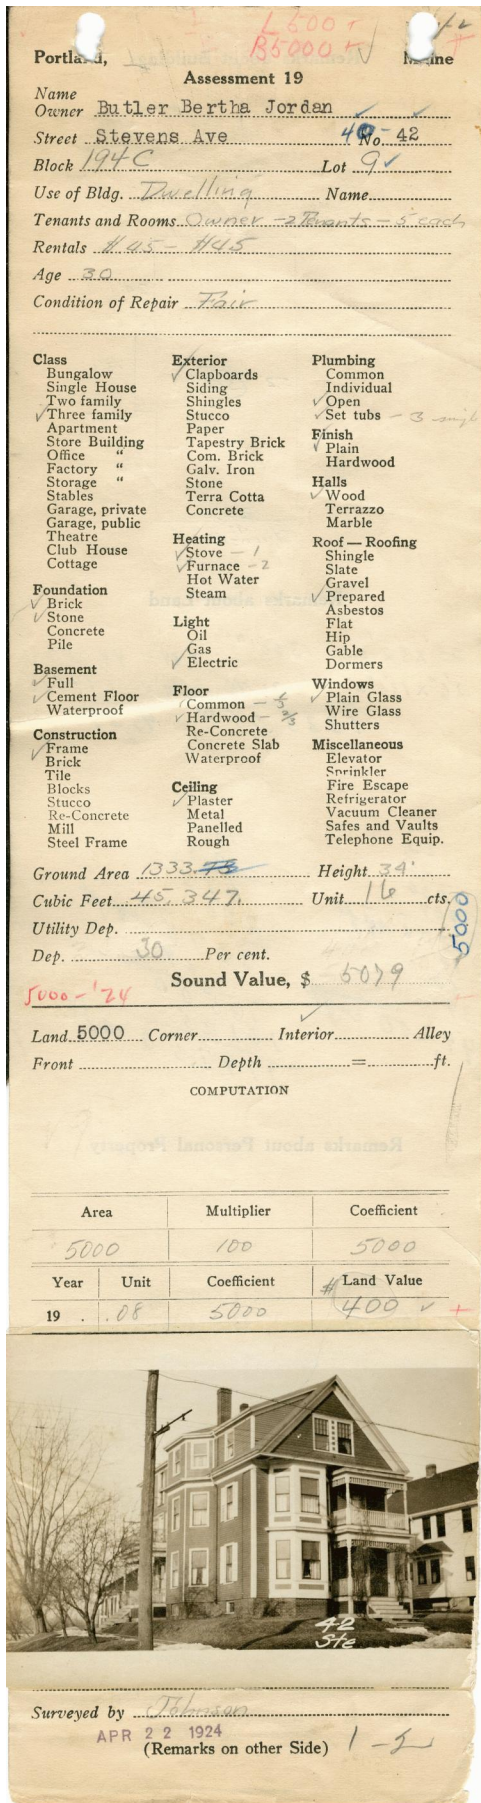 L 500 +
B5000 +
Portland, Maine
Assessment 19
Name
Owner Butler Bertha Jordan
Street Stevens Ave 40- No. 42
Block 194C Lot 9
Use of Bldg. Dwelling Name
Tenants and Rooms Owner - 2 Tenants - 5 each
Rentals $45 - $45
Age 30
Condition of Repair Fair
Class
Bungalow
Single House
Two family
✓ Three family
Apartment
Store Building
Office "
Factory "
Storage "
Stables
Garage, private
Garage, public
Theatre
Club House
Cottage
Foundation
✓ Brick
✓ Stone
Concrete
Pile
Basement
✓ Full
✓ Cement Floor
Waterproof
Construction
✓ Frame
Brick
Tile
Blocks
Stucco
Re-Concrete
Mill
Steel Frame
Exterior
✓ Clapboards
Siding
Shingles
Stucco
Paper
Tapestry Brick
Com. Brick
Galv. Iron
Stone
Terra Cotta
Concrete
Heating
✓ Stove - 1
✓ Furnace - 2
Hot Water
Steam
Light
Oil
Gas
✓ Electric
Floor
Common - 1/3
✓ Hardwood - 2/3
Re-Concrete
Concrete Slab
Waterproof
Ceiling
✓ Plaster
Metal
Panelled
Rough
Plumbing
Common
Individual
✓ Open
✓ Set tubs - 3
Finish
✓ Plain
Hardwood
Halls
✓ Wood
Terrazzo
Marble
Roof — Roofing
Shingle
Slate
Gravel
✓ Prepared
Asbestos
Flat
Hip
Gable
Dormers
Windows
✓ Plain Glass
Wire Glass
Shutters
Miscellaneous
Elevator
Sprinkler
Fire Escape
Refrigerator
Vacuum Cleaner
Safes and Vaults
Telephone Equip.
Ground Area 1333. Height 34'
Cubic Feet 45,347. Unit 16 cts.
Utility Dep.
5000
Dep. 30 Per cent.
Sound Value, $ 5079
5000-'24
Land 5000 Corner Interior Alley
Front Depth = ft.
COMPUTATION
Area Multiplier Coefficient
5000 100 5000
Year Unit Coefficient Land Value
19 . .08 5000 $400 ✓ +
42
Ste
Surveyed by Johnson
APR 22 1924
(Remarks on other Side)